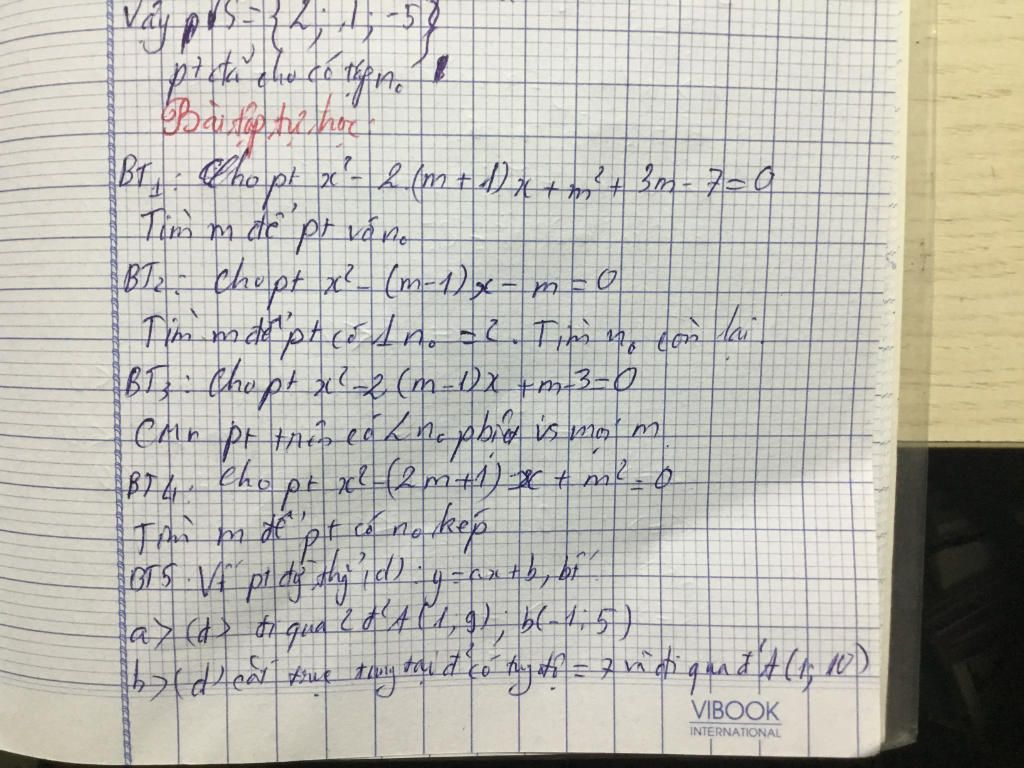 Vậy pt S = {2; 1; -5}
pt đã cho có tập n₀
Bài tập tự học
BT1: Cho pt x² - 2(m+1)x + m² + 3m - 7 = 0
Tìm m để pt vô n₀
BT2: Cho pt x² - (m-1)x - m = 0
Tìm m để pt có 1 n₀ = 2. Tìm n₀ còn lại
BT3: Cho pt x² - 2(m-1)x + m - 3 = 0
CMr pt có 2 n₀ pbiệt vs mọi m
BT4: Cho pt x² - (2m+1)x + m² = 0
Tìm m để pt có n₀ kép
BT5: Vt pt đg thg (d): y = ax + b, bt
a> (d) đi qua 2 đ' A(1, 9); b(-1; 5)
b> (d) cắt trục tung tại đ' có tung độ = 7 và đi qua đ' A(1; 10)
VIBOOK
INTERNATIONAL